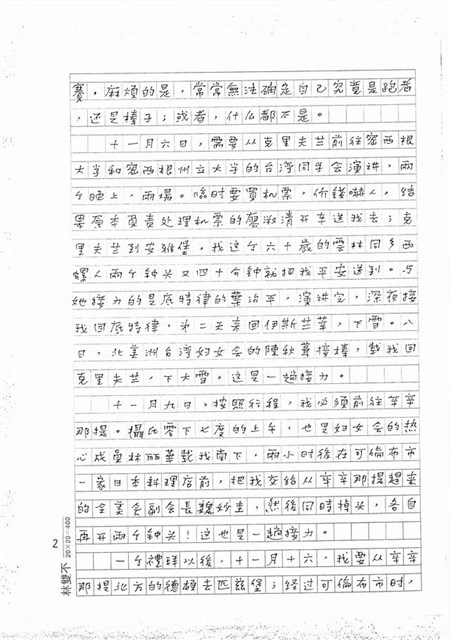 賽，麻烦的是，常常無法确定自己究竟是跑者
，还是棒子；或者，什么都不是。
十一月六日，需要从克里夫兰前往密西根
大学和密西根州立大学的台湾同学会演讲，兩
个晚上，兩場。临时要買机票，价錢嚇人，结
果原本負责处理机票的廖淑清开车送我去；克
里夫兰到安雅堡，我这个六十歲的雲林同乡西
螺人兩个钟头又四十分钟就把我平安送到。与
她接力的是底特律的葉治平，演讲完，深夜接
我回底特律，第二天来回伊斯兰莘，下雪。八
日，北美洲台湾妇女会的陳秋蓉接棒，載我回
克里夫兰，下大雪。这是一趟接力。
十一月九日，按照行程，我必须前往辛辛
那提。攝氏零下七度的上午，也是妇女会的热
心成員林西華載我南下，兩小时後在可倫布市
一家日本料理店前，把我交给从辛辛那提趕来
的全美会副会長魏妙圭，然後同时掉头，各自
再开兩个钟头！这也是一趟接力。
一个禮拜以後，十一月十六，我要从辛辛
那提北方的德頓去匹兹堡；经过可倫布市时，
2
林雙不 20×20=400